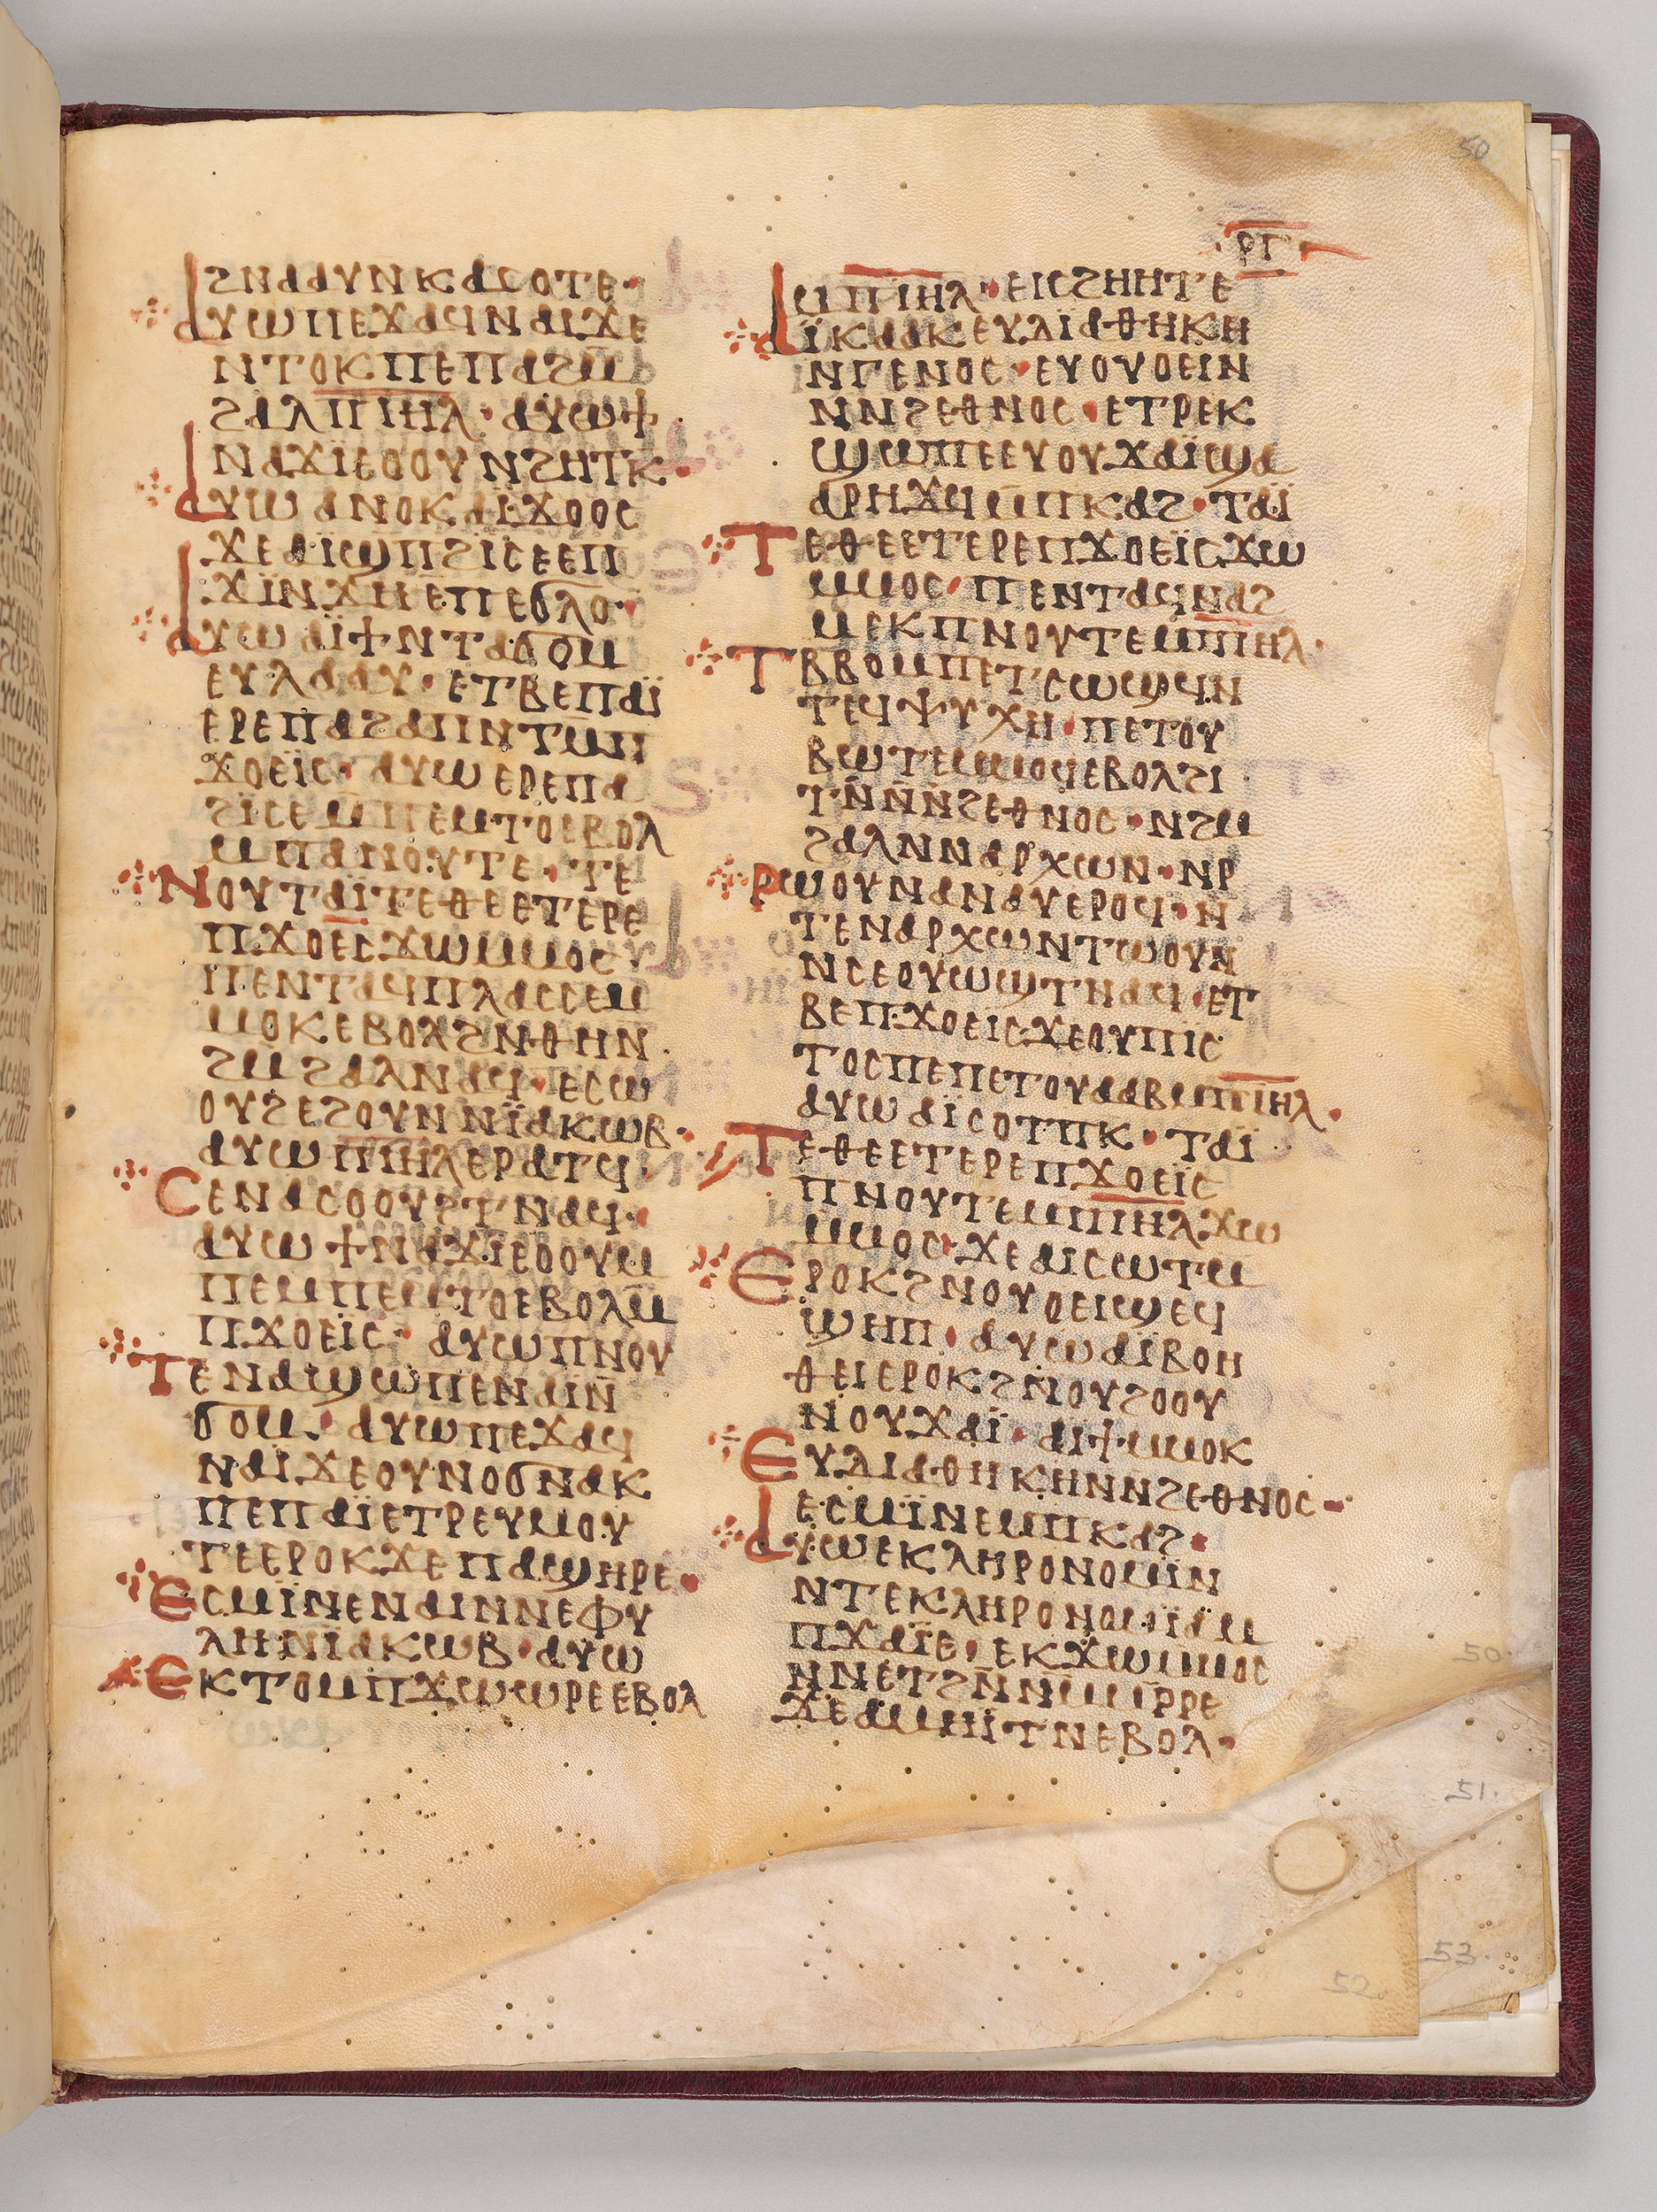 50
ⲣⲅ
ϩⲛⲁⲁⲩⲛⲕⲁⲥⲟⲧⲉ·
ⲁⲩⲱⲡⲉϫⲁϥⲛⲁⲓϫⲉ
ⲛⲧⲟⲕⲡⲉⲡⲁϩⲙ̄
ϩⲁⲗⲡⲓⲏⲗ· ⲁⲩⲱϯ
ⲛⲁϫⲓⲉⲟⲟⲩⲛϩⲏⲧⲕ·
ⲁⲩⲱⲁⲛⲟⲕⲁⲓϫⲟⲟⲥ
ϫⲉⲁⲓϣⲡϩⲓⲥⲉⲉⲡ
ϫⲓⲛϫⲏⲉⲡⲉϭⲗⲟ·
ⲁⲩⲱⲁⲓϯⲛⲧⲁϭⲟⲙ
ⲉⲩⲗⲁⲁⲩ· ⲉⲧⲃⲉⲡⲁⲓ̈
ⲉⲣⲉⲡⲁϩⲁⲡⲛⲧⲙ̄ⲡ
ϫⲟⲉⲓ̈ⲥ· ⲁⲩⲱⲉⲣⲉⲡⲁ
ϩⲓ̈ⲥⲉⲙ̄ⲡⲉⲙⲧⲟⲉⲃⲟⲗ
ⲙⲡⲁⲛⲟⲩⲧⲉ· ⲧⲉ
ⲛⲟⲩⲧⲁⲓ̈ⲧⲉⲑⲉⲉⲧⲉⲣⲉ
ⲡϫⲟⲉⲓⲥϫⲱⲙⲙⲟⲥ
ⲡⲉⲛⲧⲁϥⲡⲗⲁⲥⲥⲉⲙ
ⲙⲟⲕⲉⲃⲟⲗϩⲛⲑⲏⲛ
ϩⲙϩⲁⲗⲛⲁϥ· ⲉⲥⲱ
ⲟⲩϩⲉϩⲟⲩⲛⲛⲓ̈ⲁⲕⲱⲃ·
ⲁⲩⲱⲡⲓⲏⲗⲉⲣⲁⲧϥ·
ⲥⲉⲛⲁⲥⲟⲟⲩϩⲧⲛⲁϥ·
ⲁⲩⲱϯⲛⲁϫⲓⲉⲟⲟⲩⲙ
ⲡⲉⲙⲡⲉⲙⲧⲟⲉⲃⲟⲗⲙ̄
ⲡϫⲟⲉⲓ̈ⲥ· ⲁⲩⲱⲡⲛⲟⲩ
ⲧⲉⲛⲁϣⲱⲡⲉⲛⲁⲓⲛ̄
ϭⲟⲙ· ⲁⲩⲱⲡⲉϫⲁϥ
ⲛⲁⲓϫⲉⲟⲩⲛⲟϭⲛⲁⲕ
ⲡⲉⲡⲁⲓ̈ⲉⲧⲣⲉⲩⲙⲟⲩ
ⲧⲉⲉⲣⲟⲕϫⲉⲡⲁϣⲏⲣⲉ·
ⲉⲥⲙⲓ̈ⲛⲉⲛⲁⲓⲛⲛⲉⲫⲩ
ⲗⲏⲛⲓⲁⲕⲱⲃ· ⲁⲩⲱ
ⲉⲕⲧⲟⲙⲡϫⲱⲱⲣⲉⲉⲃⲟⲗ
ⲙⲡⲓⲏⲗ· ⲉⲓⲥϩⲏⲏⲧⲉ
ⲁⲓ̈ⲕⲁⲁⲕⲉⲩⲇⲓⲁⲑⲏⲕⲏ
ⲛⲅⲉⲛⲟⲥ· ⲉⲩⲟⲩⲟⲉⲓⲛ
ⲛⲛϩⲉⲑⲛⲟⲥ· ⲉⲧⲣⲉⲕ
ϣⲱⲡⲉⲉⲩⲟⲩϫⲁⲓ̈ϣⲁ
ⲁⲣⲏϫϥⲙⲡⲕⲁϩ· ⲧⲁⲓ̈
ⲧⲉⲑⲉⲉⲧⲉⲣⲉⲡϫⲟⲉⲓ̈ⲥϫⲱ
ⲙⲙⲟⲥ· ⲡⲉⲛⲧⲁϥⲛⲁϩ
ⲙⲉⲕⲡⲛⲟⲩⲧⲉⲙⲡⲓⲏⲗ·
ⲧⲃⲃⲟⲙⲡⲉⲧⲥⲱϣϥⲛ
ⲧⲉϥⲯⲩⲭⲏ· ⲡⲉⲧⲟⲩ
ⲃⲱⲧⲉⲙⲙⲟϥⲉⲃⲟⲗϩⲓ
ⲧⲛ̄ⲛ̄ⲛ̄ϩⲉⲑⲛⲟⲥ· ⲛϩⲙ
ϩⲁⲗⲛⲛⲁⲣⲭⲱⲛ· ⲛⲣ
ⲣⲱⲟⲩⲛⲁⲛⲁⲩⲉⲣⲟϥ· ⲛ
ⲧⲉⲛⲁⲣⲭⲱⲛⲧⲱⲟⲩⲛ
ⲛⲥⲉⲟⲩⲱϣⲧⲛⲁϥ· ⲉⲧ
ⲃⲉⲡϫⲟⲉⲓⲥϫⲉⲟⲩⲡⲓⲥ
ⲧⲟⲥⲡⲉⲡⲉⲧⲟⲩⲁⲁⲃⲙⲡⲓⲏⲗ·
ⲁⲩⲱⲁⲓ̈ⲥⲟⲧⲡⲕ· ⲧⲁⲓ̈
ⲧⲉⲑⲉⲉⲧⲉⲣⲉⲡϫⲟⲉⲓ̈ⲥ
ⲡⲛⲟⲩⲧⲉⲙⲡⲓⲏⲗϫⲱ
ⲙⲙⲟⲥ· ϫⲉⲁⲓⲥⲱⲧⲙ
ⲉⲣⲟⲕϩⲛⲟⲩⲟⲉⲓϣⲉϥ
ϣⲏⲡ· ⲁⲩⲱⲁⲓ̈ⲃⲟⲏ
ⲑⲉⲓⲉⲣⲟⲕϩⲛⲟⲩϩⲟⲟⲩ
ⲛⲟⲩϫⲁⲓ̈· ⲁⲓϯⲙⲙⲟⲕ
ⲉⲩⲇⲓⲁⲑⲏⲕⲏⲛⲛϩⲉⲑⲛⲟⲥ·
ⲉⲥⲙⲓ̈ⲛⲉⲙⲡⲕⲁϩ·
ⲁⲩⲱⲉⲕⲗⲏⲣⲟⲛⲟⲙⲓ̈ⲛ
ⲛⲧⲉⲕⲗⲏⲣⲟⲛⲟⲙⲓ̈ⲁⲙ
ⲡϫⲁⲓ̈ⲉ· ⲉⲕϫⲱⲙⲙⲟⲥ
ⲛⲛⲉⲧϩⲛ̄ⲛ̄ⲙⲣ̄ⲣⲉ
ϫⲉⲁⲙⲏⲓ̈ⲧⲛⲉⲃⲟⲗ·
50.
51.
53.
52.